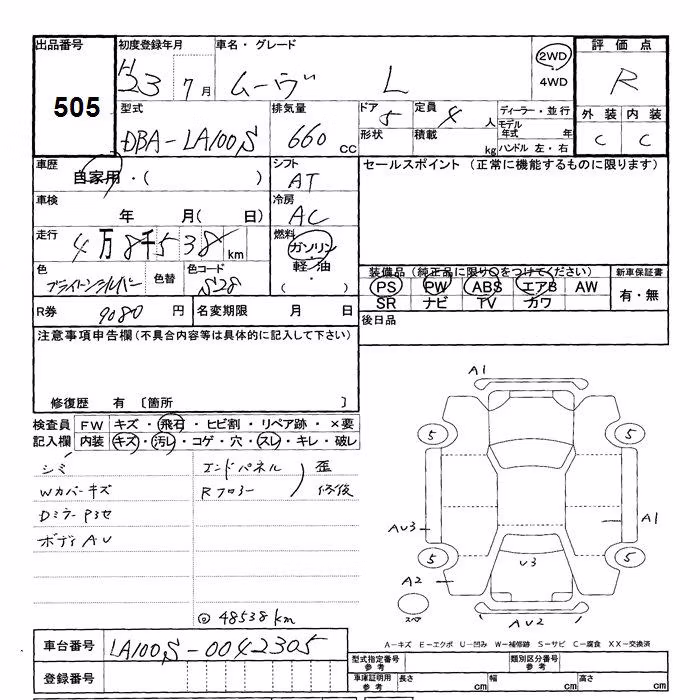 出品番号 初度登録年月 車名・グレード 評価点
505 H23 7月 ムーヴ L 2WD 4WD R
型式 排気量 ドア 5 定員 4人 ディーラー・並行 外装 内装
DBA-LA100S 660cc 形状 積載 kg モデル年式 年 ハンドル 左・右 C C
車歴 自家用・( ) シフト AT セールスポイント (正常に機能するものに限ります)
車検 年 月( 日) 冷房 AC
走行 4万8千538km 燃料 ガソリン・軽・油 ( )
色 色替 色コード S28 装備品(純正品に限り○をつけてください) 新車保証書
PS PW ABS エアB AW 有・無
SR ナビ TV カワ
R券 9080円 名変期限 月 日 後日品
注意事項申告欄(不具合内容等は具体的に記入して下さい)
修復歴 有 〔箇所 〕
検査員 FW キズ・飛石・ヒビ割・リペア跡・×要
記入欄 内装 キズ・汚レ・コゲ・穴・スレ・キレ・破レ
シミ エンドパネル 歪
Wカバーキズ Rフロアー 修後
Dミラー
ボディAU
◎48538km
A1
5 5
AU3 A1
5 U3 5
A2
スペ AU2
A-キズ E-エクボ U-凹み W-補修跡 S-サビ C-腐食 XX-交換済
車台番号 LA100S-0042305 型式指定番号 参考 類別区分番号 参考
登録番号 車庫証明用 参考 長さ cm 幅 cm 高さ cm